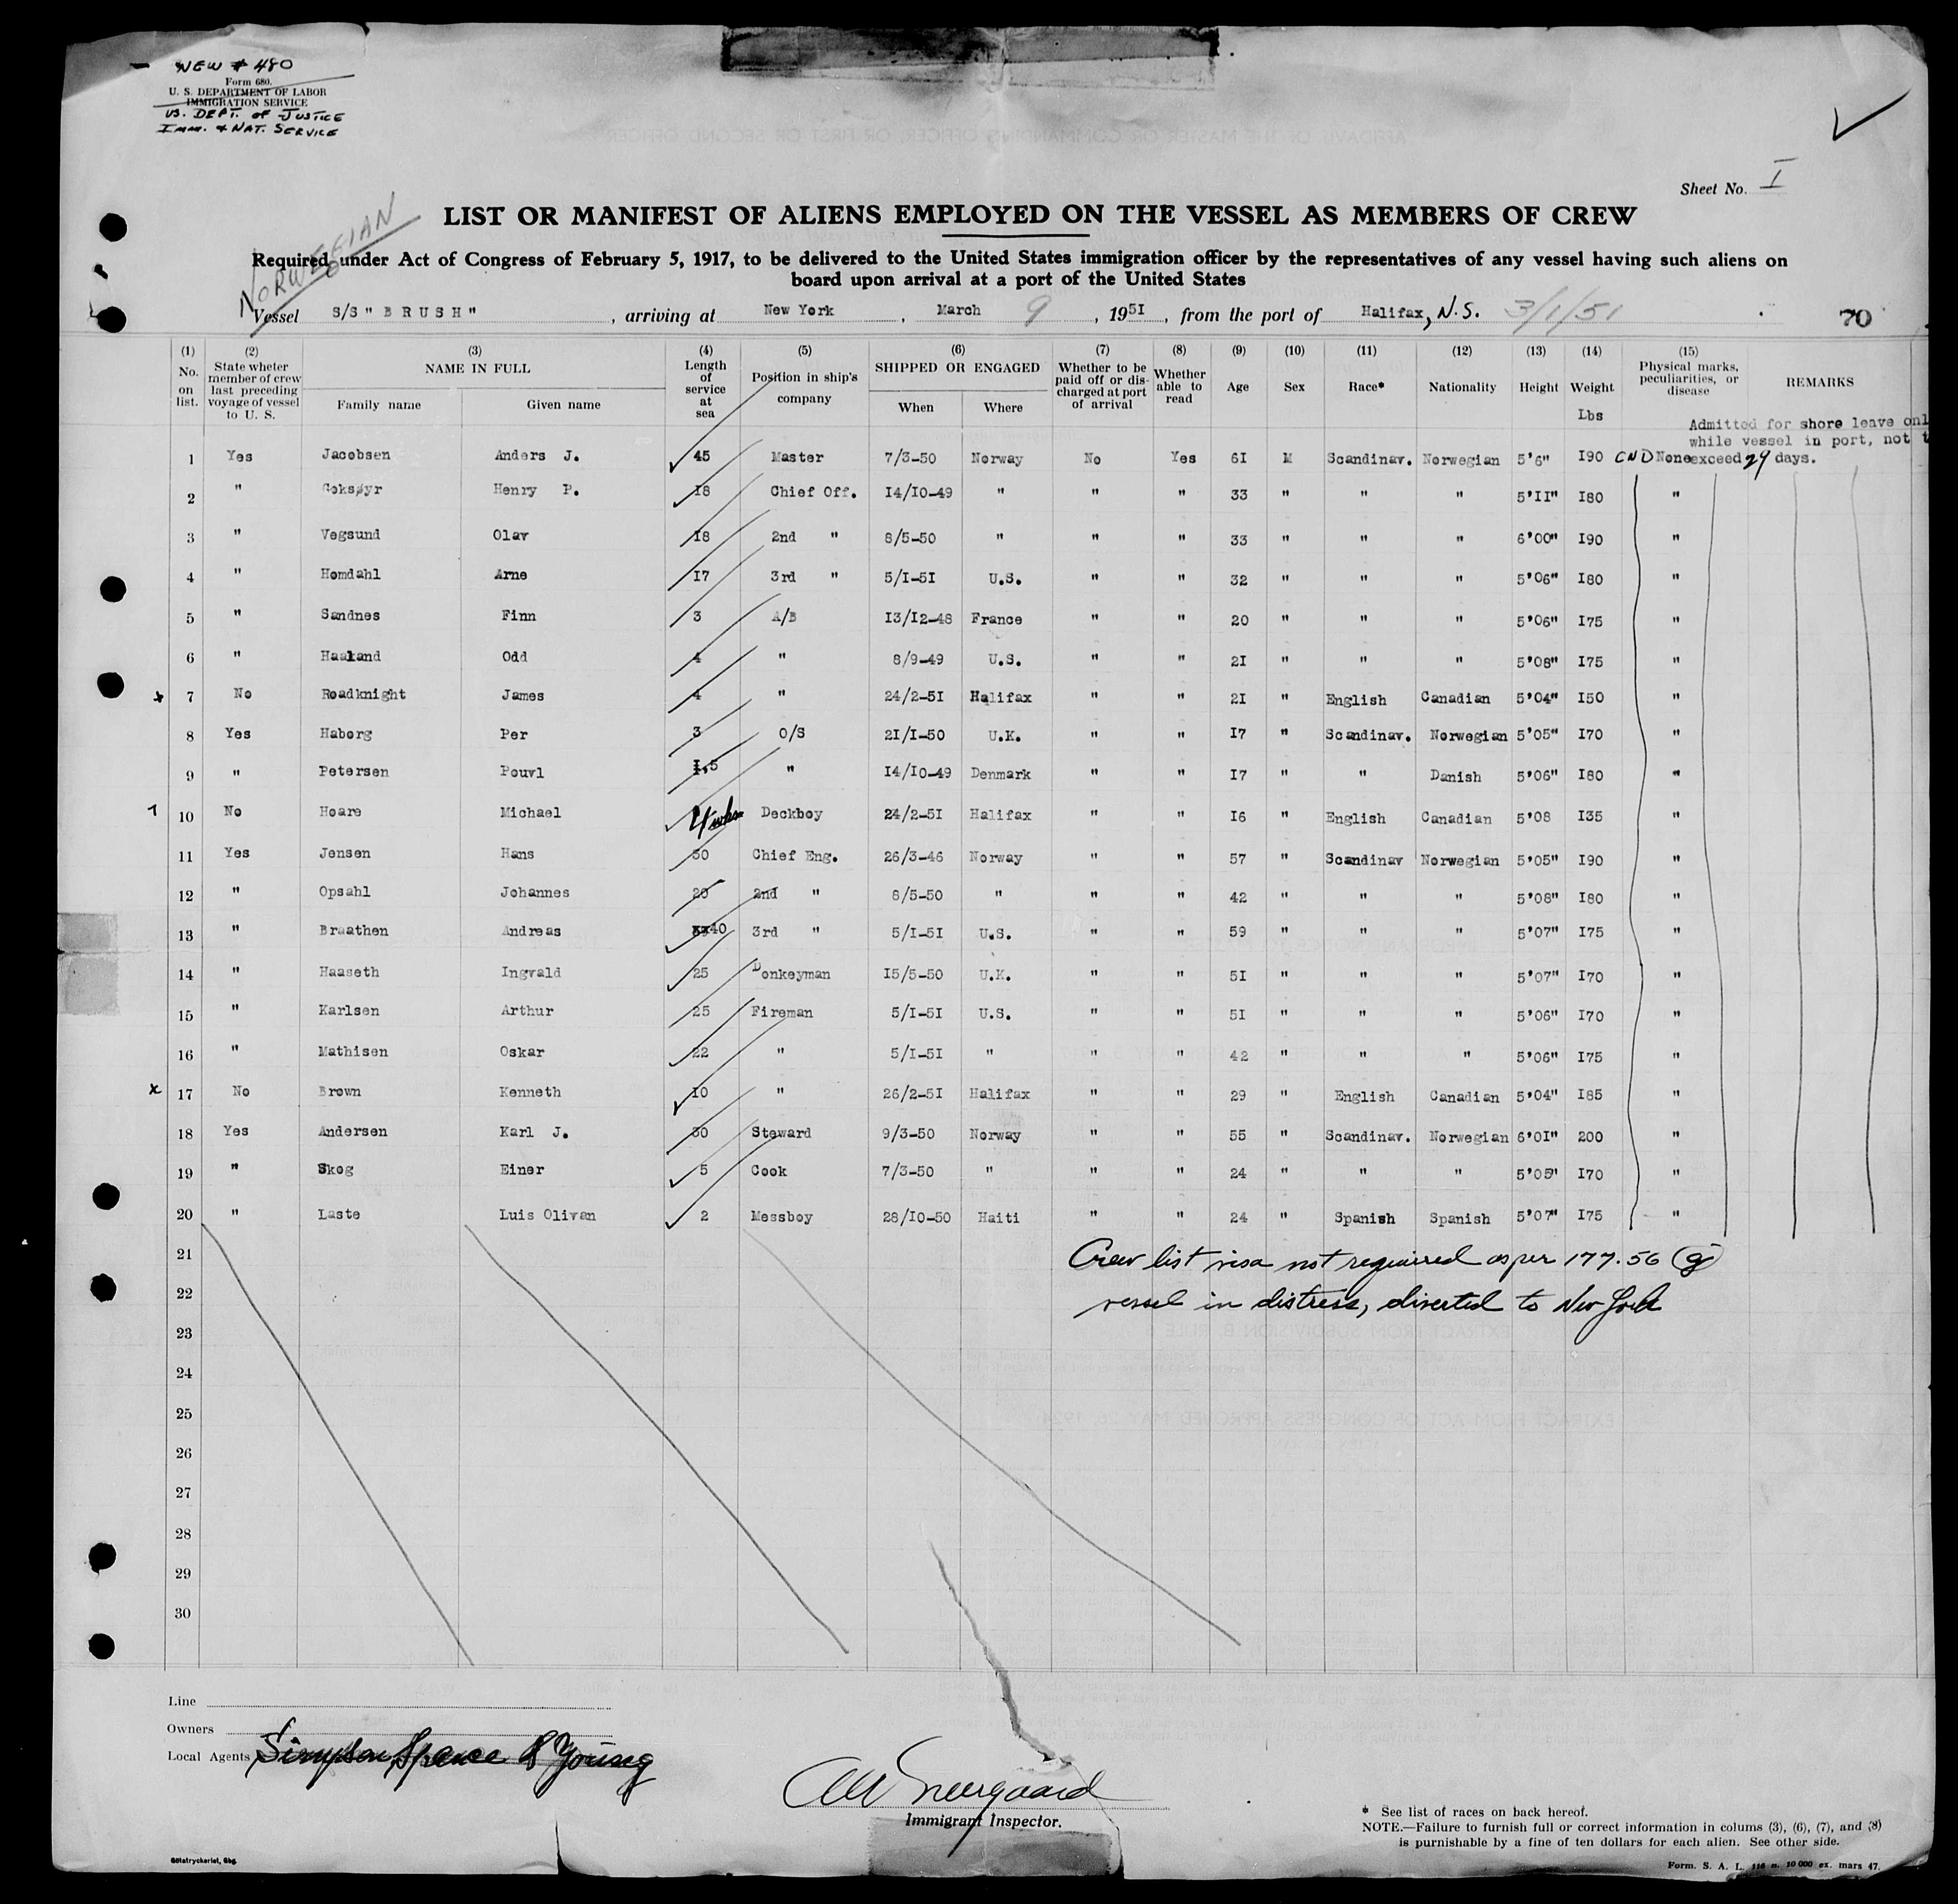 NEW # 480
Form 680.
U. S. DEPARTMENT OF LABOR
IMMIGRATION SERVICE
US. DEPT. of JUSTICE
Imm. + NAT. SERVICE
Sheet No. I
NORWEGIAN
LIST OR MANIFEST OF ALIENS EMPLOYED ON THE VESSEL AS MEMBERS OF CREW
Required under Act of Congress of February 5, 1917, to be delivered to the United States immigration officer by the representatives of any vessel having such aliens on
board upon arrival at a port of the United States
Vessel S/S " B R U S H " , arriving at New York , March 9 , 1951 , from the port of Halifax, N.S. 3/1/51 70
(1) (2) (3) (4) (5) (6) (7) (8) (9) (10) (11) (12) (13) (14) (15)
No. on list. State wheter member of crew last preceding voyage of vessel to U. S. NAME IN FULL Family name Given name Length of service at sea Position in ship's company SHIPPED OR ENGAGED When Where Whether to be paid off or discharged at port of arrival Whether able to read Age Sex Race* Nationality Height Weight Lbs Physical marks, peculiarities, or disease REMARKS
Admitted for shore leave onl
while vessel in port, not t
exceed 29 days.
1 Yes Jacobsen Anders J. 45 Master 7/3-50 Norway No Yes 6I M Scandinav. Norwegian 5'6" I90 CND None
2 " Goksøyr Henry P. I8 Chief Off. I4/I0-49 " " " 33 " " " 5'II" I80 "
3 " Vegsund Olav I8 2nd " 8/5-50 " " " 33 " " " 6'00" I90 "
4 " Homdahl Arne I7 3rd " 5/I-5I U.S. " " 32 " " " 5'06" I80 "
5 " Sandnes Finn 3 A/B I3/I2-48 France " " 20 " " " 5'06" I75 "
6 " Haaland Odd 4 " 8/9-49 U.S. " " 2I " " " 5'08" I75 "
7 No Roadknight James 4 " 24/2-5I Halifax " " 2I " English Canadian 5'04" I50 "
8 Yes Haborg Per 3 O/S 2I/I-50 U.K. " " I7 " Scandinav. Norwegian 5'05" I70 "
9 " Petersen Pouvl I,5 " I4/I0-49 Denmark " " I7 " " Danish 5'06" I80 "
10 No Hoare Michael 4 wks Deckboy 24/2-5I Halifax " " I6 " English Canadian 5'08 I35 "
11 Yes Jensen Hans 30 Chief Eng. 26/3-46 Norway " " 57 " Scandinav Norwegian 5'05" I90 "
12 " Opsahl Johannes 20 2nd " 8/5-50 " " " 42 " " " 5'08" I80 "
13 " Braathen Andreas 40 3rd " 5/I-5I U.S. " " 59 " " " 5'07" I75 "
14 " Haaseth Ingvald 25 Donkeyman I5/5-50 U.K. " " 5I " " " 5'07" I70 "
15 " Karlsen Arthur 25 Fireman 5/I-5I U.S. " " 5I " " " 5'06" I70 "
16 " Mathisen Oskar 22 " 5/I-5I " " " 42 " " " 5'06" I75 "
17 No Brown Kenneth I0 " 26/2-5I Halifax " " 29 " English Canadian 5'04" I85 "
18 Yes Andersen Karl J. 30 Steward 9/3-50 Norway " " 55 " Scandinav. Norwegian 6'0I" 200 "
19 " Skog Einer 5 Cook 7/3-50 " " " 24 " " " 5'05" I70 "
20 " Laste Luis Olivan 2 Messboy 28/I0-50 Haiti " " 24 " Spanish Spanish 5'07" I75 "
21
Crew list visa not required as per 177.56 (g)
22
vessel in distress, diverted to New York
23
24
25
26
27
28
29
30
Line
Owners
Local Agents Simpson, Spence & Young
Immigrant Inspector.
* See list of races on back hereof.
NOTE.—Failure to furnish full or correct information in colums (3), (6), (7), and (8)
is purnishable by a fine of ten dollars for each alien. See other side.
Götatryckeriet, Gbg.
Form. S. A. L. 116 n. 10 000 ex. mars 47.